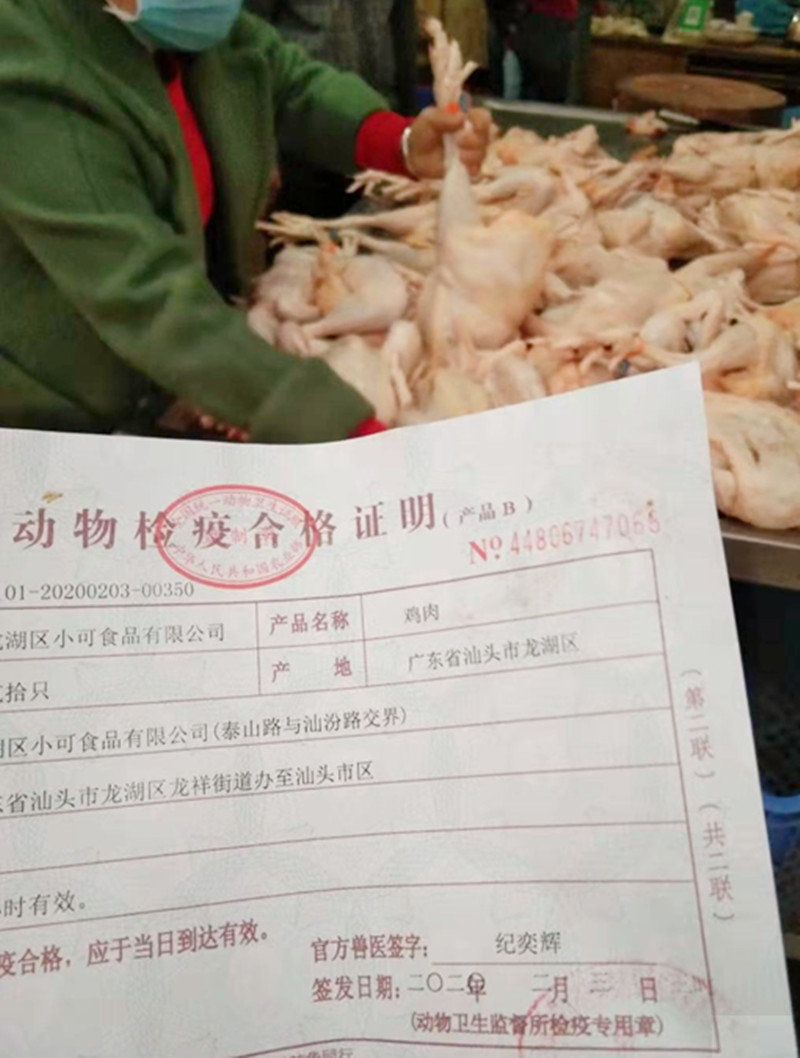 动物检疫合格证明(产品B)
№44806747065
01-20200203-00350
湖区小可食品有限公司
产品名称
鸡肉
拾只
产 地
广东省汕头市龙湖区
区小可食品有限公司(泰山路与汕汾路交界)
省汕头市龙湖区龙祥街道办至汕头市区
时有效。
疫合格，应于当日到达有效。
官方兽医签字：
纪奕辉
签发日期：二〇二〇年 二月 三 日
(动物卫生监督所检疫专用章)
(第二联)
(共二联)